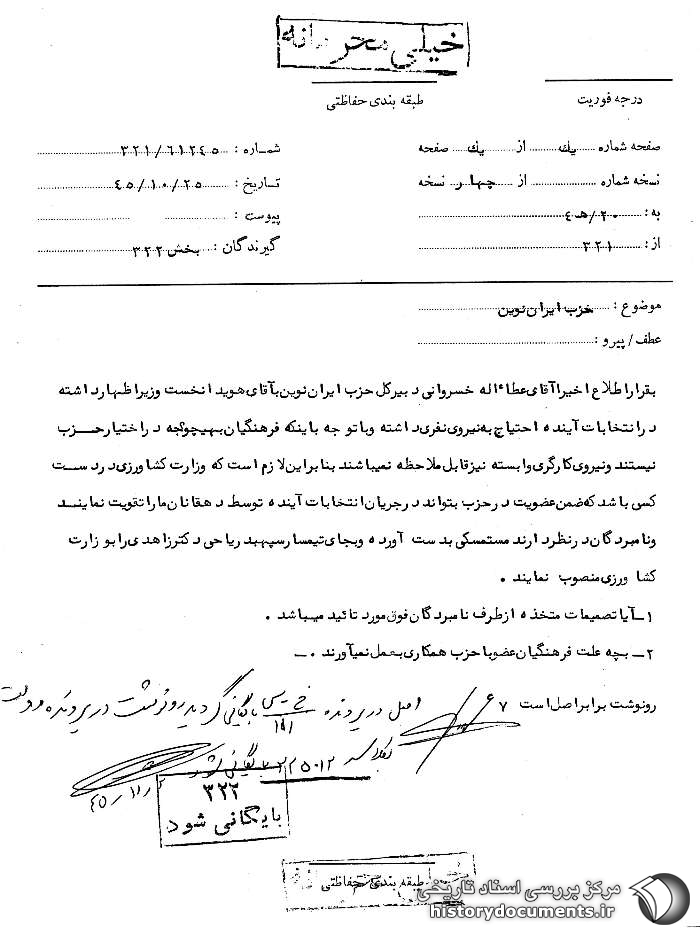 خیلی محرمانه
درجه فوریت
طبقه بندی حفاظتی
صفحه شماره یک از یک صفحه
شماره : ۳۲۱/۶۱۲۴۵
نسخه شماره از چهار نسخه
تاریخ : ۴۵/۱۰/۲۵
به : ۲۰/هـ۴
پیوست :
از : ۳۲۱
گیرندگان : بخش ۳۲۲
موضوع : حزب ایران نوین
عطف / پیرو :
بقرار اطلاع اخیرا آقای عطاءاله خسروانی دبیرکل حزب ایران نوین بآقای هویدا نخست وزیر اظهار داشته
در انتخابات آینده احتیاج به نیروی نفری داشته و با توجه باینکه فرهنگیان بهیچوجه در اختیار حزب
نیستند و نیروی کارگری وابسته نیز قابل ملاحظه نمیباشند بنابراین لازم است که وزارت کشاورزی در دست
کسی باشد که ضمن عضویت در حزب بتواند در جریان انتخابات آینده توسط دهقانان ما را تقویت نماینـد
و نامبردگان در نظر دارند مستمسکی بدست آورده و بجای تیمسار سپهبد ریاحی دکتر زاهدی را بوزارت
کشاورزی منصوب نمایند .
۱ـ آیا تصمیمات متخذه از طرف نامبردگان فوق مورد تائید میباشد .
۲ـ بچه علت فرهنگیان عضو با حزب همکاری بعمل نمیآورند .ـ
رونوشت برابر اصل است ۶۷
اصل در پرونده بایگانی گردید رونوشت در پرونده
۲۲۵۰۱۲ بایگانی شود
۴۵/۱۱/۲
۳۲۲
بایگانی شود
طبقه بندی حفاظتی
مرکز بررسی اسناد تاریخی
historydocuments.ir